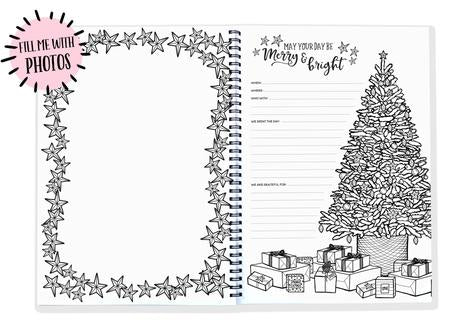 FILL ME WITH
PHOTOS
MAY YOUR DAY BE
Merry &
bright
WHEN:
WHERE:
WHO WITH:
WE SPENT THE DAY:
WE ARE GRATEFUL FOR: